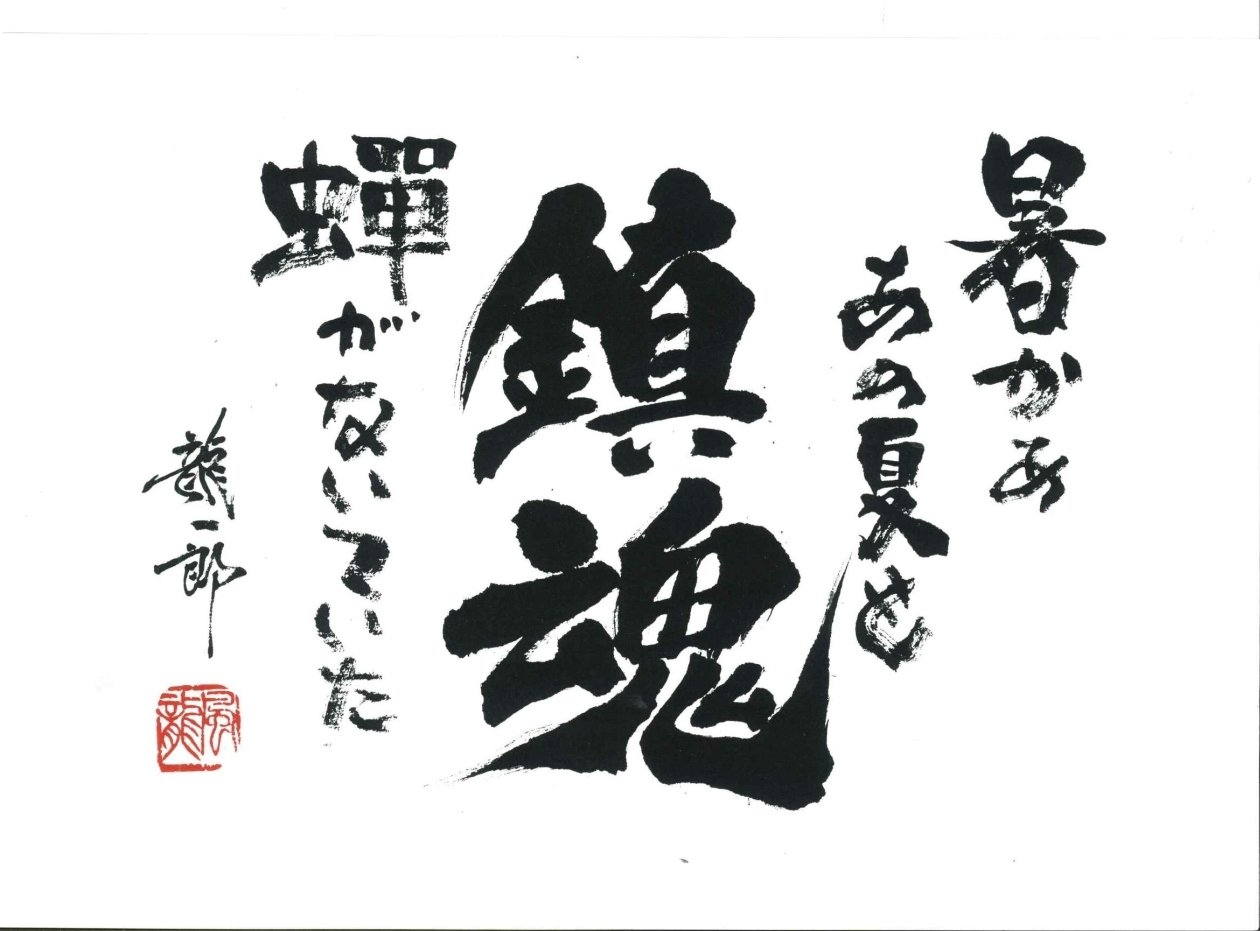 暑かあ
あの夏も
鎮魂
蝉がないていた
龍一郎
風龍